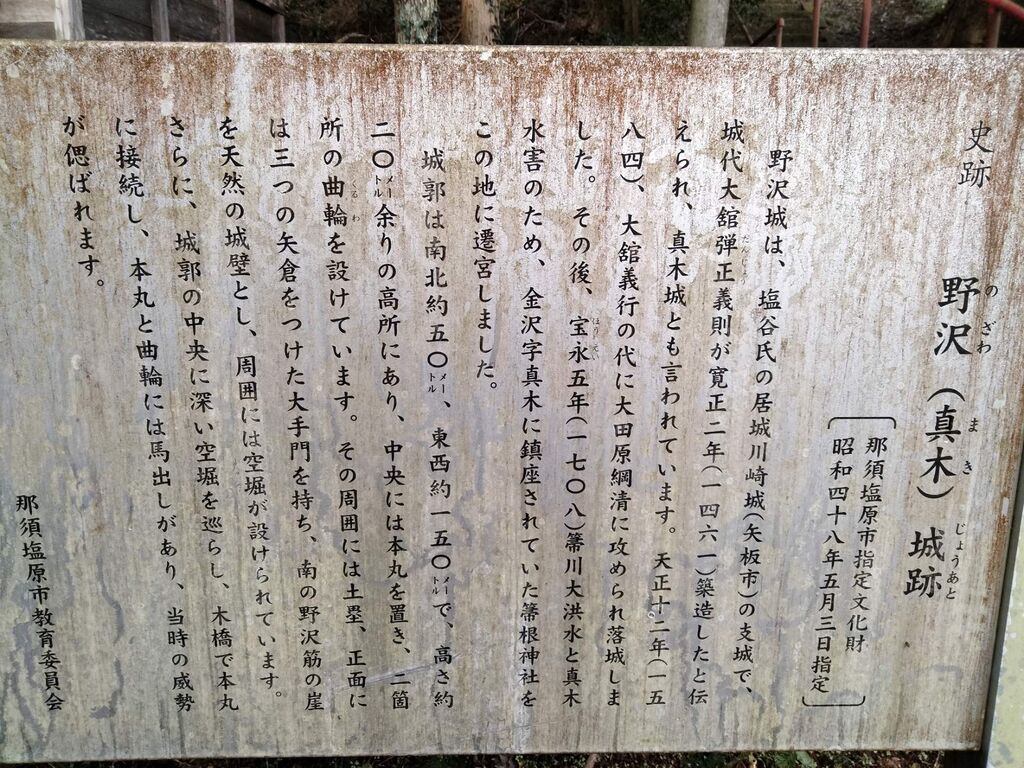 史跡
野沢（真木）城跡
のざわ
まき
じょうあと
那須塩原市指定文化財
昭和四十八年五月三日指定
野沢城は、塩谷氏の居城川崎城（矢板市）の支城で、
城代大舘弾正義則が寛正二年（一四六一）築造したと伝
だんじょう
えられ、真木城とも言われています。天正十二年（一五
八四）、大舘義行の代に大田原綱清に攻められ落城しま
した。その後、宝永五年（一七〇八）箒川大洪水と真木
ほうえい
水害のため、金沢字真木に鎮座されていた箒根神社を
この地に遷宮しました。
城郭は南北約五〇メートル、東西約一五〇メートルで、高さ約
二〇メートル余りの高所にあり、中央には本丸を置き、二箇
所の曲輪を設けています。その周囲には土塁、正面に
くるわ
は三つの矢倉をつけた大手門を持ち、南の野沢筋の崖
を天然の城壁とし、周囲には空堀が設けられています。
さらに、城郭の中央に深い空堀を巡らし、木橋で本丸
に接続し、本丸と曲輪には馬出しがあり、当時の威勢
が偲ばれます。
那須塩原市教育委員会